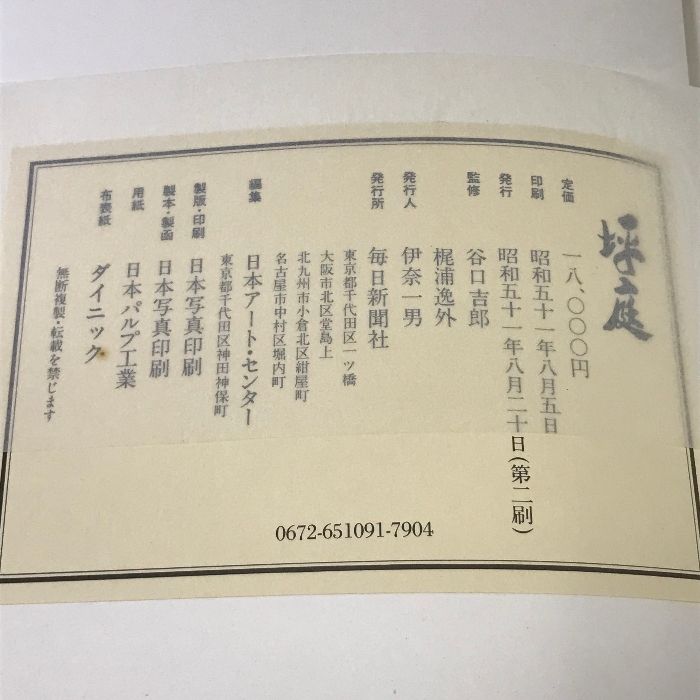 坪庭
定価 一八、〇〇〇円
印刷 昭和五十一年八月五日
発行 昭和五十一年八月二十日(第二刷)
監修 谷口吉郎
梶浦逸外
発行人 伊奈一男
発行所 毎日新聞社
東京都千代田区一ツ橋
大阪市北区堂島上
北九州市小倉北区紺屋町
名古屋市中村区堀内町
編集 日本アート・センター
東京都千代田区神田神保町
製版・印刷 日本写真印刷
製本・製函 日本写真印刷
用紙 日本パルプ工業
布表紙 ダイニック
無断複製・転載を禁じます
0672-651091-7904